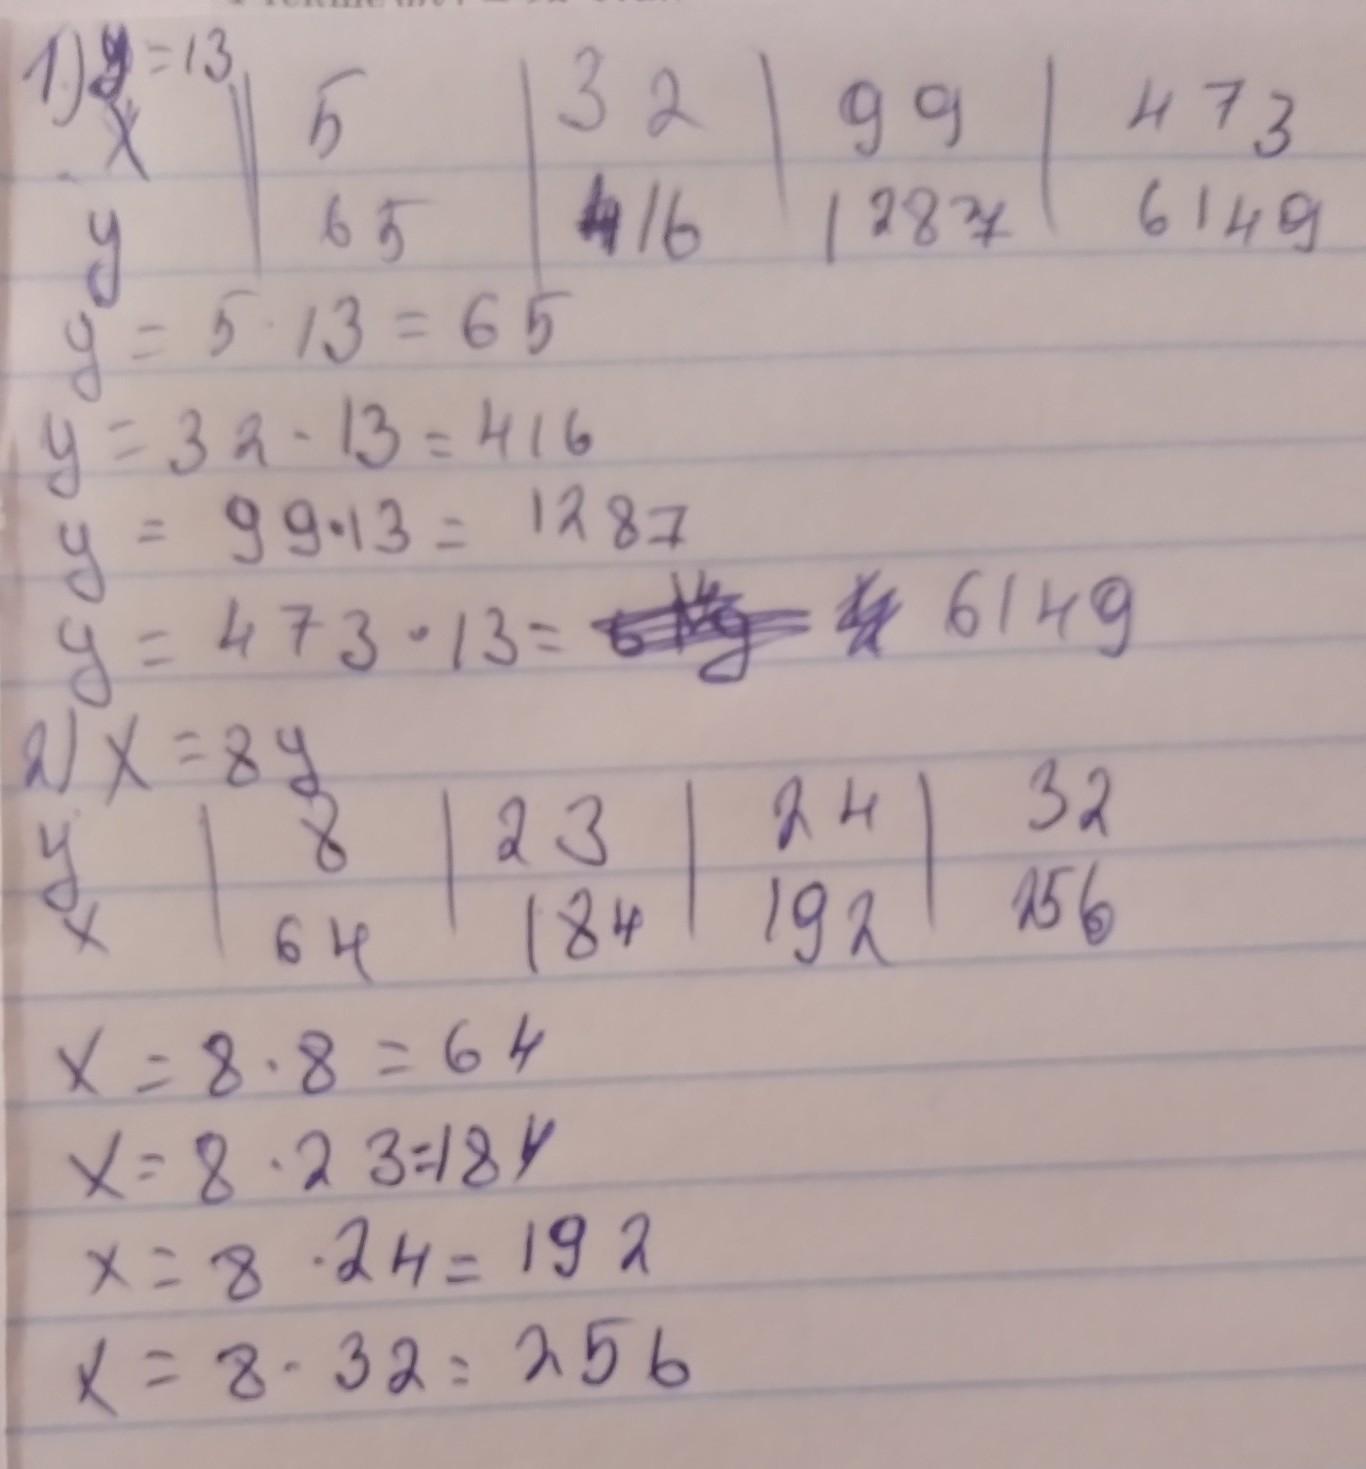 1) y = 13
x | 5 | 32 | 99 | 473
y | 65 | 416 | 1287 | 6149
y = 5 · 13 = 65
y = 32 · 13 = 416
y = 99 · 13 = 1287
y = 473 · 13 = 6149
2) x = 8y
y | 8 | 23 | 24 | 32
x | 64 | 184 | 192 | 256
x = 8 · 8 = 64
x = 8 · 23 = 184
x = 8 · 24 = 192
x = 8 · 32 = 256